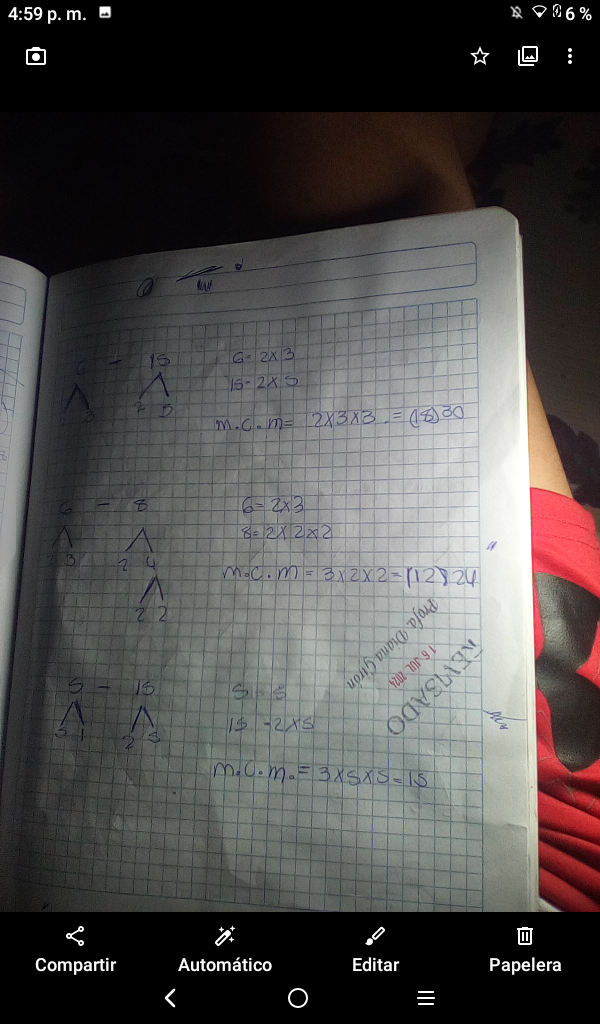 4:59 p. m. 6 %
6 - 15 6= 2x3
2 3 2 5 15- 2x5
m.c.m= 2x3x3.= (18)30
6 - 8 6= 2x3
2 3 2 4 8= 2x2x2
2 2
m.c.m = 3x2x2=(12)24
Profa Diana Giron
16 JUL 2024
REVISADO
5 - 15 5 5
5 1 2 5 15 -2x5
m.c.m.= 3x5x5=15
Compartir Automático Editar Papelera